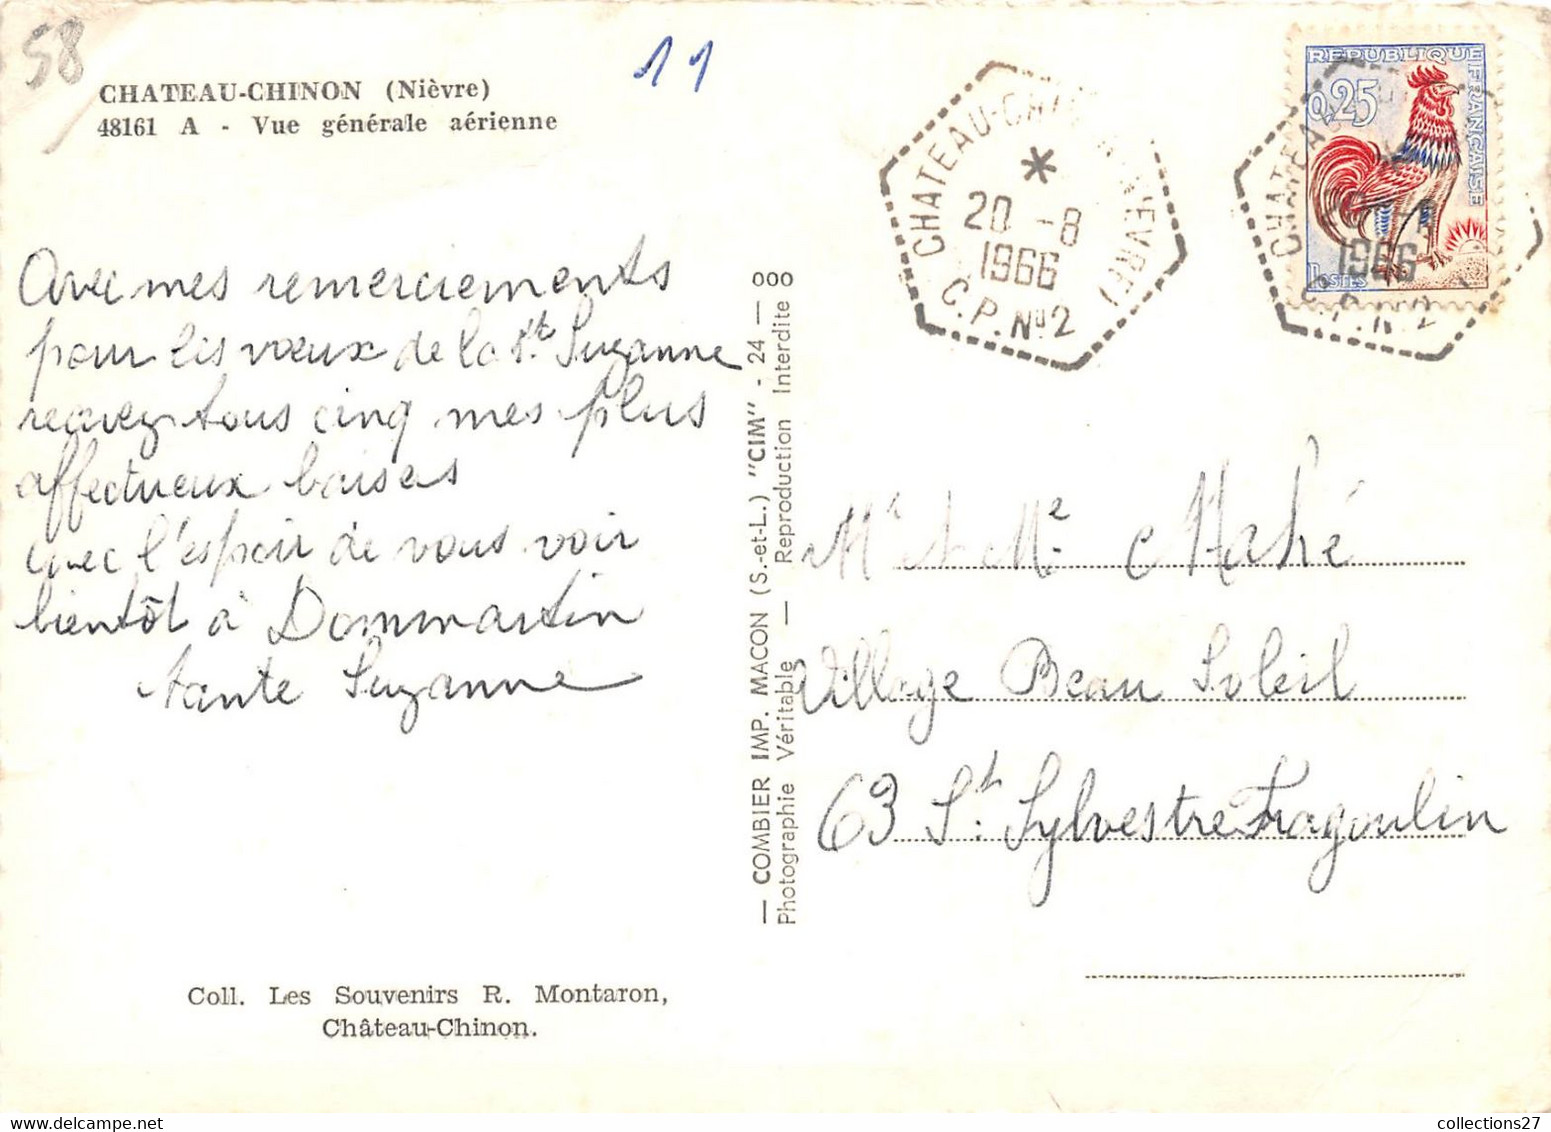 58
11
CHATEAU-CHINON (Nièvre)
48161 A - Vue générale aérienne
Avec mes remerciements
pour les vœux de la St. Suzanne
recevez tous cinq mes plus
affectueux baisers
avec l'espoir de vous voir
bientôt à Dommartin
tante Suzanne
Coll. Les Souvenirs R. Montaron,
Château-Chinon.
— COMBIER IMP. MACON (S.-et-L.) "CIM" - 24 — ooo
Photographie Véritable — Reproduction Interdite
CHATEAU-CHINON (NIEVRE)
*
20 -8
1966
C.P.N°2
REPUBLIQUE FRANÇAISE
0,25
POSTES
CHATEA
1966
C.P.N°2
Mr et Me Mahé
Village Beau Soleil
63 St. Sylvestre Fragoulin
collections27